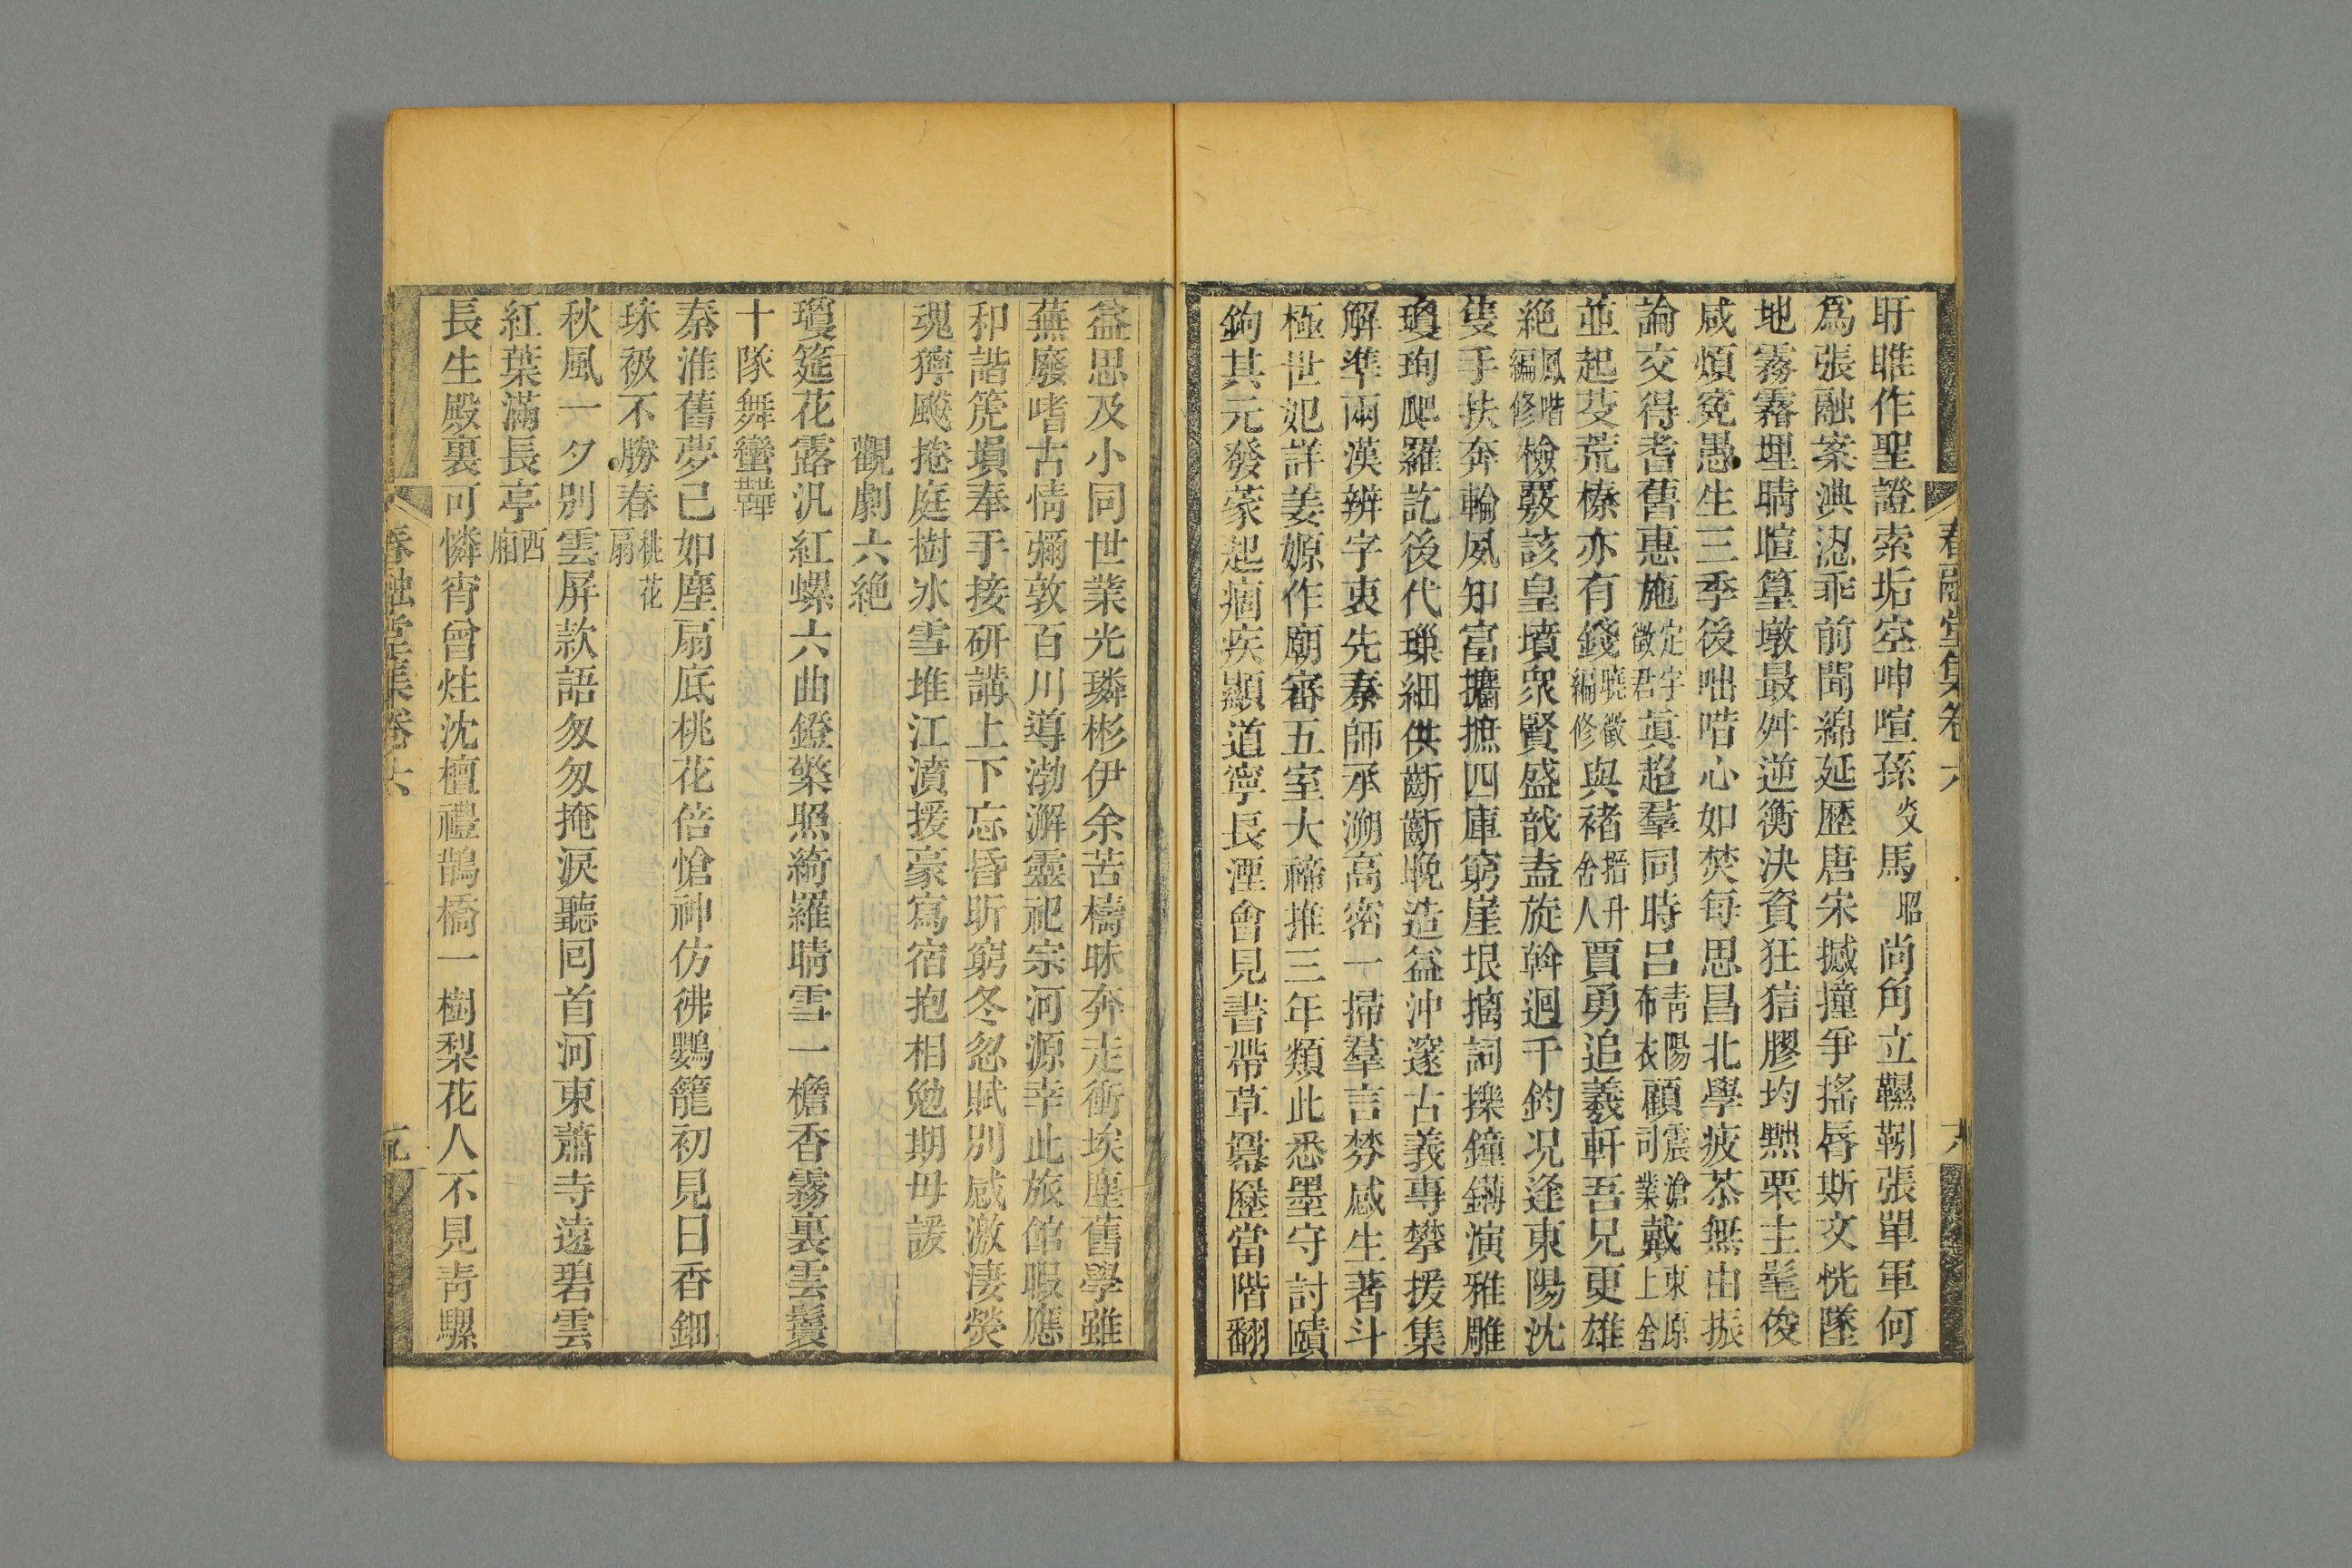 盱睢作聖證索垢空呻喧孫炎馬昭尚角立鞿靷張單軍何
爲張融案淟涊乖前聞綿延歷唐宋撼撞爭搖脣斯文恍墜
地霧霿埋晴暄篁墩最舛逆衡決資狂狺膠均黙栗主毫俊
咸煩寃愚生三季後咄唶心如焚每思昌北學疲苶無由振
論交得耆舊惠施定宇徵君眞超羣同時呂青陽布衣顧震滄司業戴東原上舍
並起芟荒榛亦有錢曉徵編修與褚搢升舍人賈勇追羲軒吾兄更雄
絶鳳喈編修檢覈該皇墳衆賢盛戠盍旋斡迴千鈞况逢東陽沈
隻手扶奔輪夙知富擴摭四庫窮崖垠摛詞摖鐘鏞演雅雕
瓊珣爬羅訖後代璅細供齗齗晚造益沖邃古義專攀援集
解準兩漢辨字衷先秦師承溯高密一掃羣言棼感生著斗
極世妃詳姜嫄作廟審五室大禘推三年類此悉墨守討賾
鉤其元發蒙起痼疾顯道寧長湮會見書帶草羃𡻕當階翻
春融堂集卷六
益思及小同世業光璘彬伊余苦檮昧奔走衝埃塵舊學雖
蕪廢嗜古情彌敦百川導渤澥靈祀宗河源幸此旅館暇應
和諧箎塤奉手接研講上下忘昏昕窮冬忽賦別感激淒熒
魂獰飈捲庭樹氷雪堆江濆援豪寫宿抱相勉期毋諼
觀劇六絶
瓊筵花露汎紅螺六曲鐙檠照綺羅晴雪一檐香霧裏雲鬟
十隊舞蠻鞾
秦淮舊夢已如塵扇底桃花倍愴神仿彿鸚籠初見日香鈿
珠衱不勝春桃花扇
秋風一夕別雲屏款語匆匆掩淚聽囘首河東蕭寺遠碧雲
紅葉滿長亭西廂
長生殿裏可憐宵曾炷沈檀禮鵲橋一樹梨花人不見青騾
春融堂集卷六